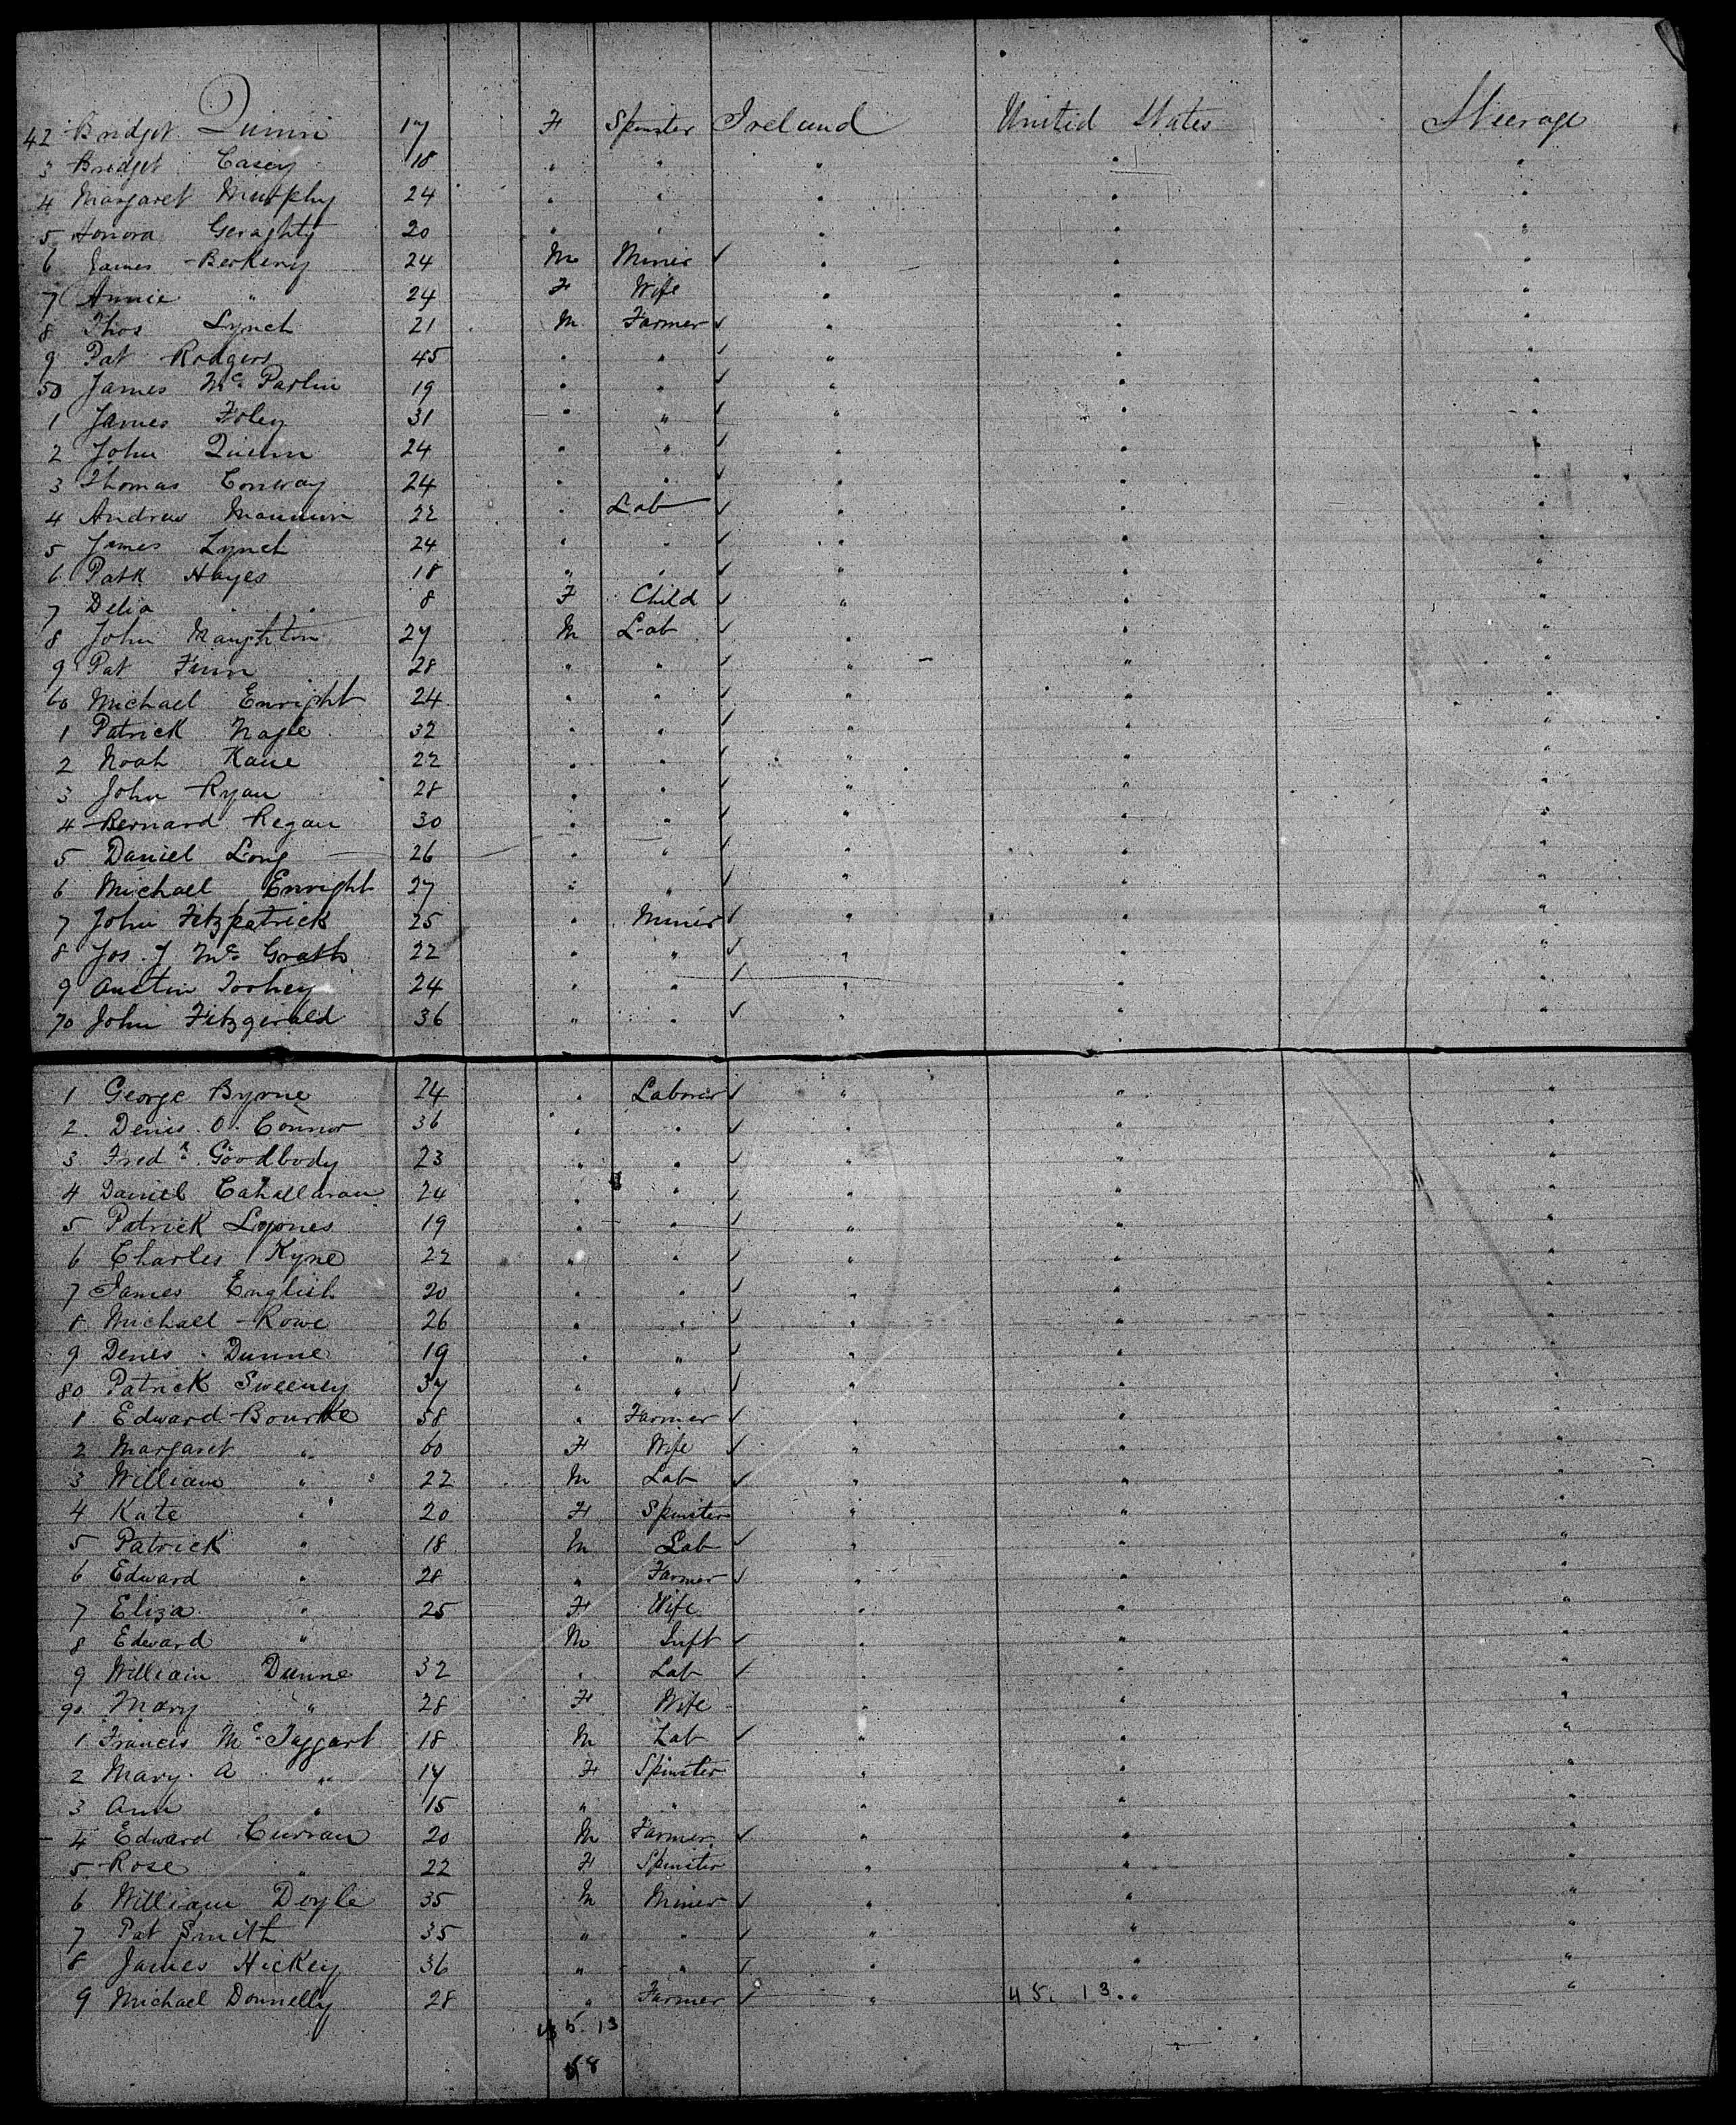 42 Bridget Quinn 17 F Spinster Ireland United States Steerage
3 Bridget Casey 18 " " " " "
4 Margaret Murphy 24 " " " " "
5 Honora Geraghty 20 " " " " "
6 James Berkery 24 M Miner ✓ " " "
7 Annie " 24 F Wife " " "
8 Thos Lynch 21 M Farmer ✓ " " "
9 Pat Rodgers 45 " " ✓ " " "
50 James Mc Partlin 19 " " ✓ " " "
1 James Foley 31 " " ✓ " " "
2 John Quinn 24 " " ✓ " " "
3 Thomas Conway 24 " " ✓ " " "
4 Andrew Mannion 22 " Lab ✓ " " "
5 James Lynch 24 " " ✓ " " "
6 Patk Hayes 18 " " ✓ " " "
7 Delia " 8 F Child ✓ " " "
8 John Naughton 27 M Lab ✓ " " "
9 Pat Finn 28 " " ✓ " " "
60 Michael Enright 24 " " ✓ " " "
1 Patrick Nagle 32 " " ✓ " " "
2 Noah Kane 22 " " ✓ " " "
3 John Ryan 28 " " ✓ " " "
4 Bernard Regan 30 " " ✓ " " "
5 Daniel Long 26 " " ✓ " " "
6 Michael Enright 27 " " ✓ " " "
7 John Fitzpatrick 25 " Miner ✓ " " "
8 Jos. J Mc Grath 22 " " ✓ " " "
9 Austin Toohey 24 " " ✓ " " "
70 John Fitzgerald 36 " " ✓ " " "
1 George Byrne 24 " Laborer ✓ " " "
2 Denis O. Connor 36 " " ✓ " " "
3 Fredk Goodbody 23 " " ✓ " " "
4 Daniel Cahallaran 24 " " ✓ " " "
5 Patrick Lyones 19 " " ✓ " " "
6 Charles Kyne 22 " " ✓ " " "
7 James English 20 " " ✓ " " "
8 Michael Rowe 26 " " ✓ " " "
9 Denis Dunne 19 " " ✓ " " "
80 Patrick Sweeney 37 " " ✓ " " "
1 Edward Bourke 58 " Farmer ✓ " " "
2 Margaret " 60 F Wife ✓ " " "
3 William " 22 M Lab ✓ " " "
4 Kate " 20 F Spinster " " "
5 Patrick " 18 M Lab ✓ " " "
6 Edward " 28 " Farmer ✓ " " "
7 Eliza " 25 F Wife " " "
8 Edward " M Inft ✓ " " "
9 William Dunne 32 " Lab ✓ " " "
90 Mary " 28 F Wife " " "
1 Francis Mc Taggart 18 M Lab ✓ " " "
2 Mary A " 17 F Spinster " " "
3 Ann " 15 " " " " "
4 Edward Curran 20 M Farmer ✓ " " "
5 Rose " 22 F Spinster " " "
6 William Doyle 35 M Miner ✓ " " "
7 Pat Smith 35 " " ✓ " " "
8 James Hickey 36 " " ✓ " " "
9 Michael Donnelly 28 " Farmer ✓ " 45. 13 " "
45. 13
58